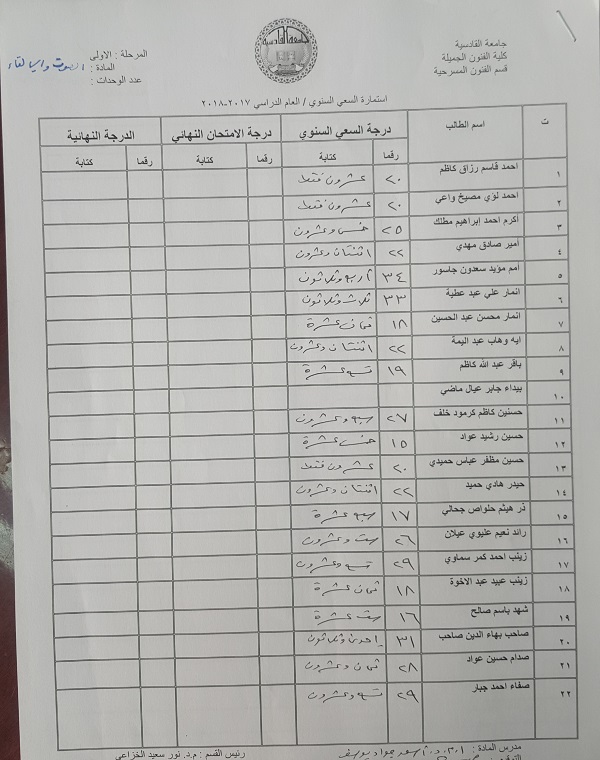 جامعة القادسية
كلية الفنون الجميلة
قسم الفنون المسرحية
جامعة القادسية
المرحلة : الاولى
المادة : الصوت والالقاء
عدد الوحدات :
استمارة السعي السنوي / العام الدراسي ٢٠١٧-٢٠١٨
ت اسم الطالب درجة السعي السنوي درجة الامتحان النهائي الدرجة النهائية
رقما كتابة رقما كتابة رقما كتابة
١ احمد قاسم رزاق كاظم ٢٠ عشرون فقط
٢ احمد لؤي مصيخ واعي ٢٠ عشرون فقط
٣ اكرم احمد إبراهيم مطلك ٢٥ خمس وعشرون
٤ أمير صادق مهدي ٢٢ اثنتان وعشرون
٥ امم مؤيد سعدون جاسور ٣٤ اربع وثلاثون
٦ انمار علي عبد عطية ٣٣ ثلاث وثلاثون
٧ انمار محسن عبد الحسين ١٨ ثمان عشرة
٨ ايه وهاب عبد اليمة ٢٢ اثنتان وعشرون
٩ باقر عبد الله كاظم ١٩ تسع عشرة
١٠ بيداء جابر عيال ماضي
١١ حسنين كاظم كرمود خلف ٢٧ سبع وعشرون
١٢ حسين رشيد عواد ١٥ خمس عشرة
١٣ حسين مظفر عباس حميدي ٢٠ عشرون فقط
١٤ حيدر هادي حميد ٢٢ اثنتان وعشرون
١٥ ذر هيثم حلواص جحالي ١٧ سبع عشرة
١٦ رائد نعيم عليوي عيلان ٢٦ ست وعشرون
١٧ زينب احمد كمر سماوي ٢٩ تسع وعشرون
١٨ زينب عبيد عبد الاخوة ١٨ ثمان عشرة
١٩ شهد باسم صالح ١٦ ست عشرة
٢٠ صاحب بهاء الدين صاحب ٣١ إحدى وثلاثون
٢١ صدام حسين عواد ٢٨ ثمان وعشرون
٢٢ صفاء احمد جبار ٢٩ تسع وعشرون
مدرس المادة : ا.م.د. اسعد جواد يوسف
رئيس القسم : م.د. نور سعيد الخزاعي